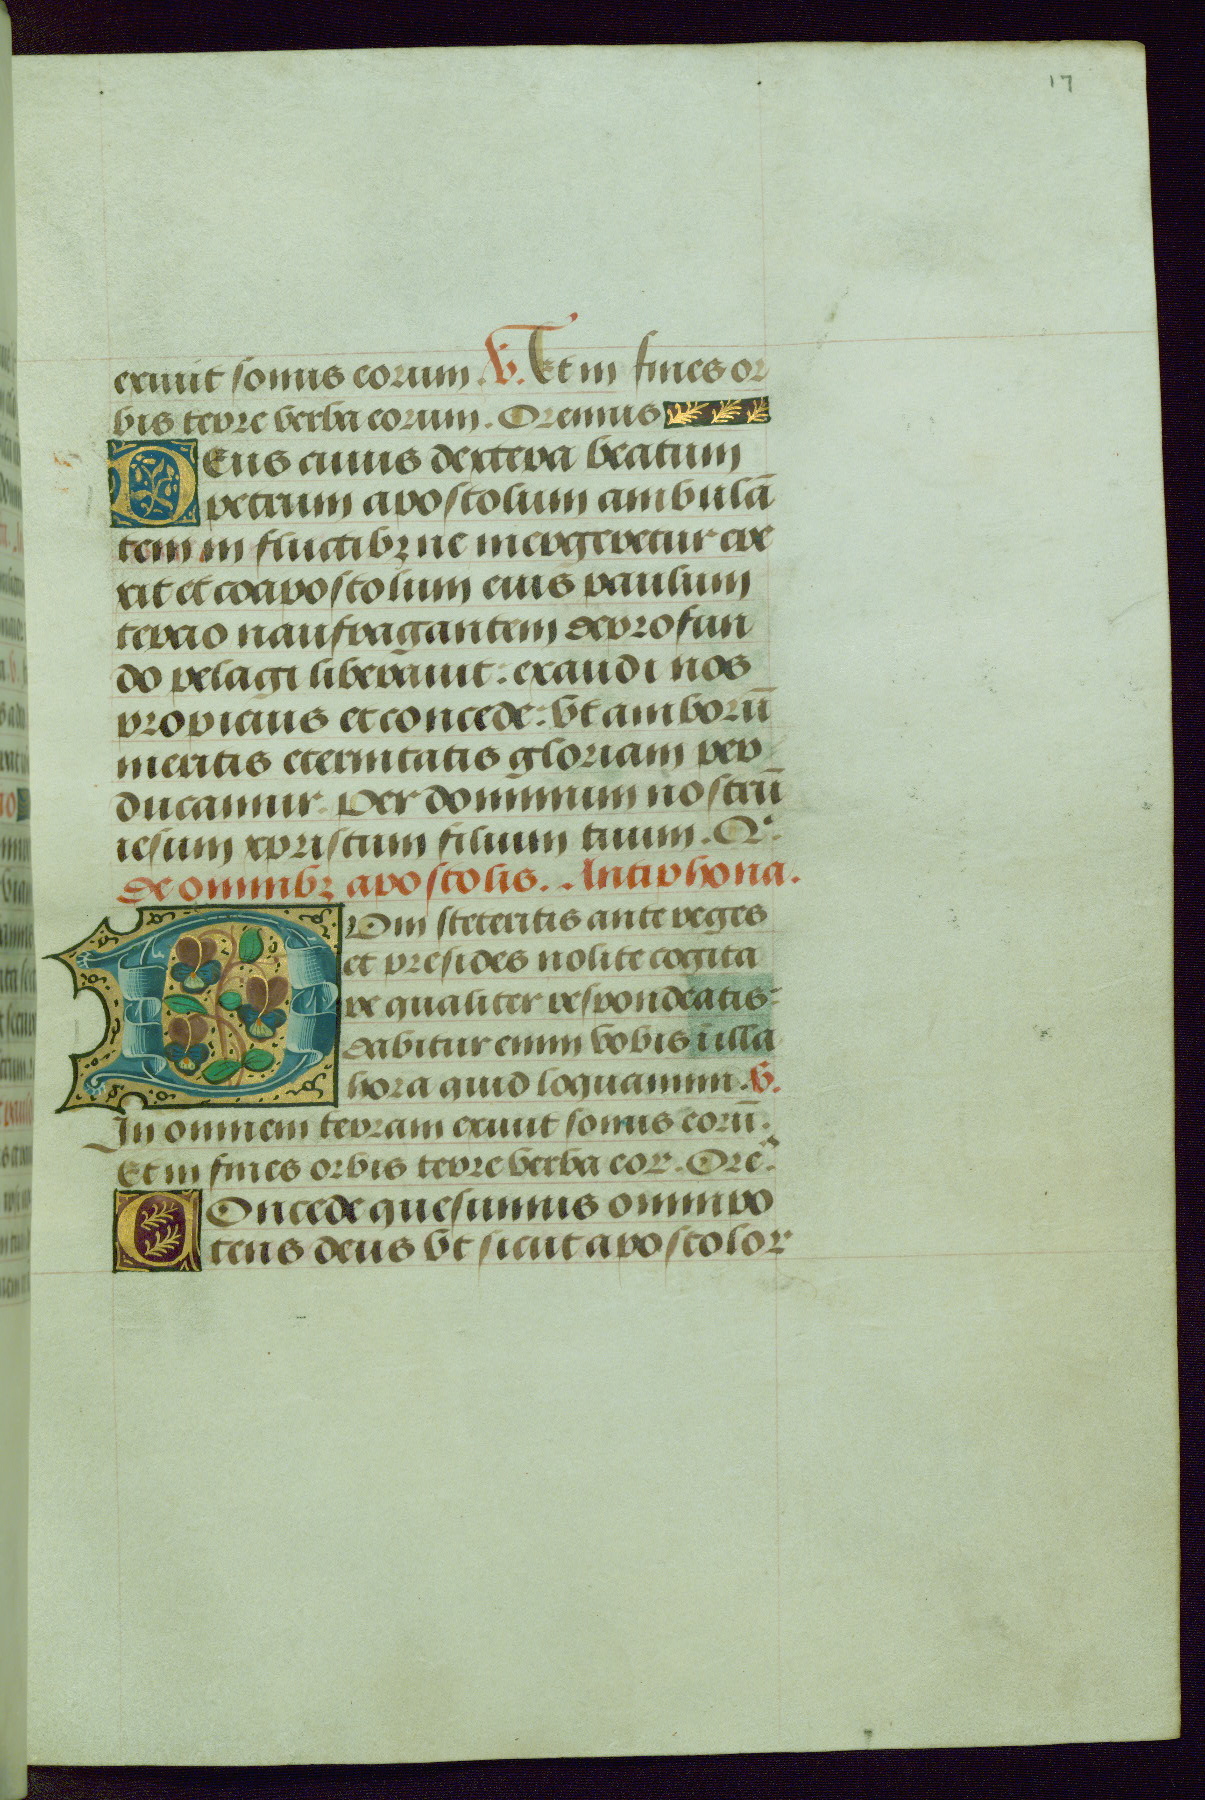 17
exiuit sonus eorum. V. Et in fines or
bis terre verba eorum. Oremus
DEus cuius dextera beatum
petrum apostolum ambulā
tem in fluctibꝫ ne mergeretur ere
xit et coapostolum eius paulum
tercio naufragantem deprofun
do pelagi liberauit: exaudi nos
propicius et concede: vt amborū
meritis eternitatis gloriam per
ducamur. Per dominum nostrū
iesum xpristum filium tuum. Q
De omnibꝫ apostolis. Antiphona.
DUm steteritis ante reges
et presides nolite cogita
re qualiter respondeatis:
dabitur enim vobis ī illa
hora quid loquamini. V.
In omnem terram exiuit sonus eorū.
Et in fines orbis terre verba eor. Orē.
COncede quesumus omnipo
tens deus vt sicut apostolor